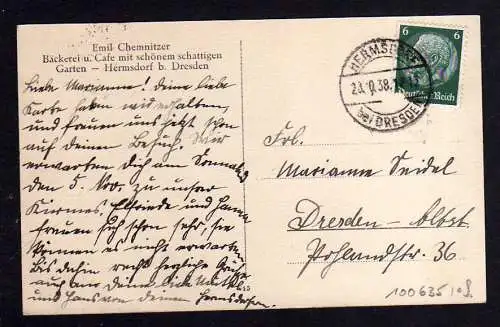 Emil Chemnitzer
Bäckerei u. Cafe mit schönem schattigen
Garten — Hermsdorf b. Dresden
Liebe Marianne! Deine liebe
Karte haben wir erhalten,
und freuen uns jetzt schon
auf deinen Besuch. Wir
erwarten dich am Sonnabd
den 5. Nov. zu unser
Kirmes. Elfriede und Hanna
freuen sich schon sehr, sie
können es nicht erwarten.
Bis dahin recht herzliche Grüße
auch von deine liebe
und Hans von deinen Hermsdorfern.
HERMSDORF
23.10.38.
bei DRESDEN
6 6
Deutsches Reich
Frl.
Marianne Seidel
Dresden - Altst.
Pohlandstr. 36
15
100635